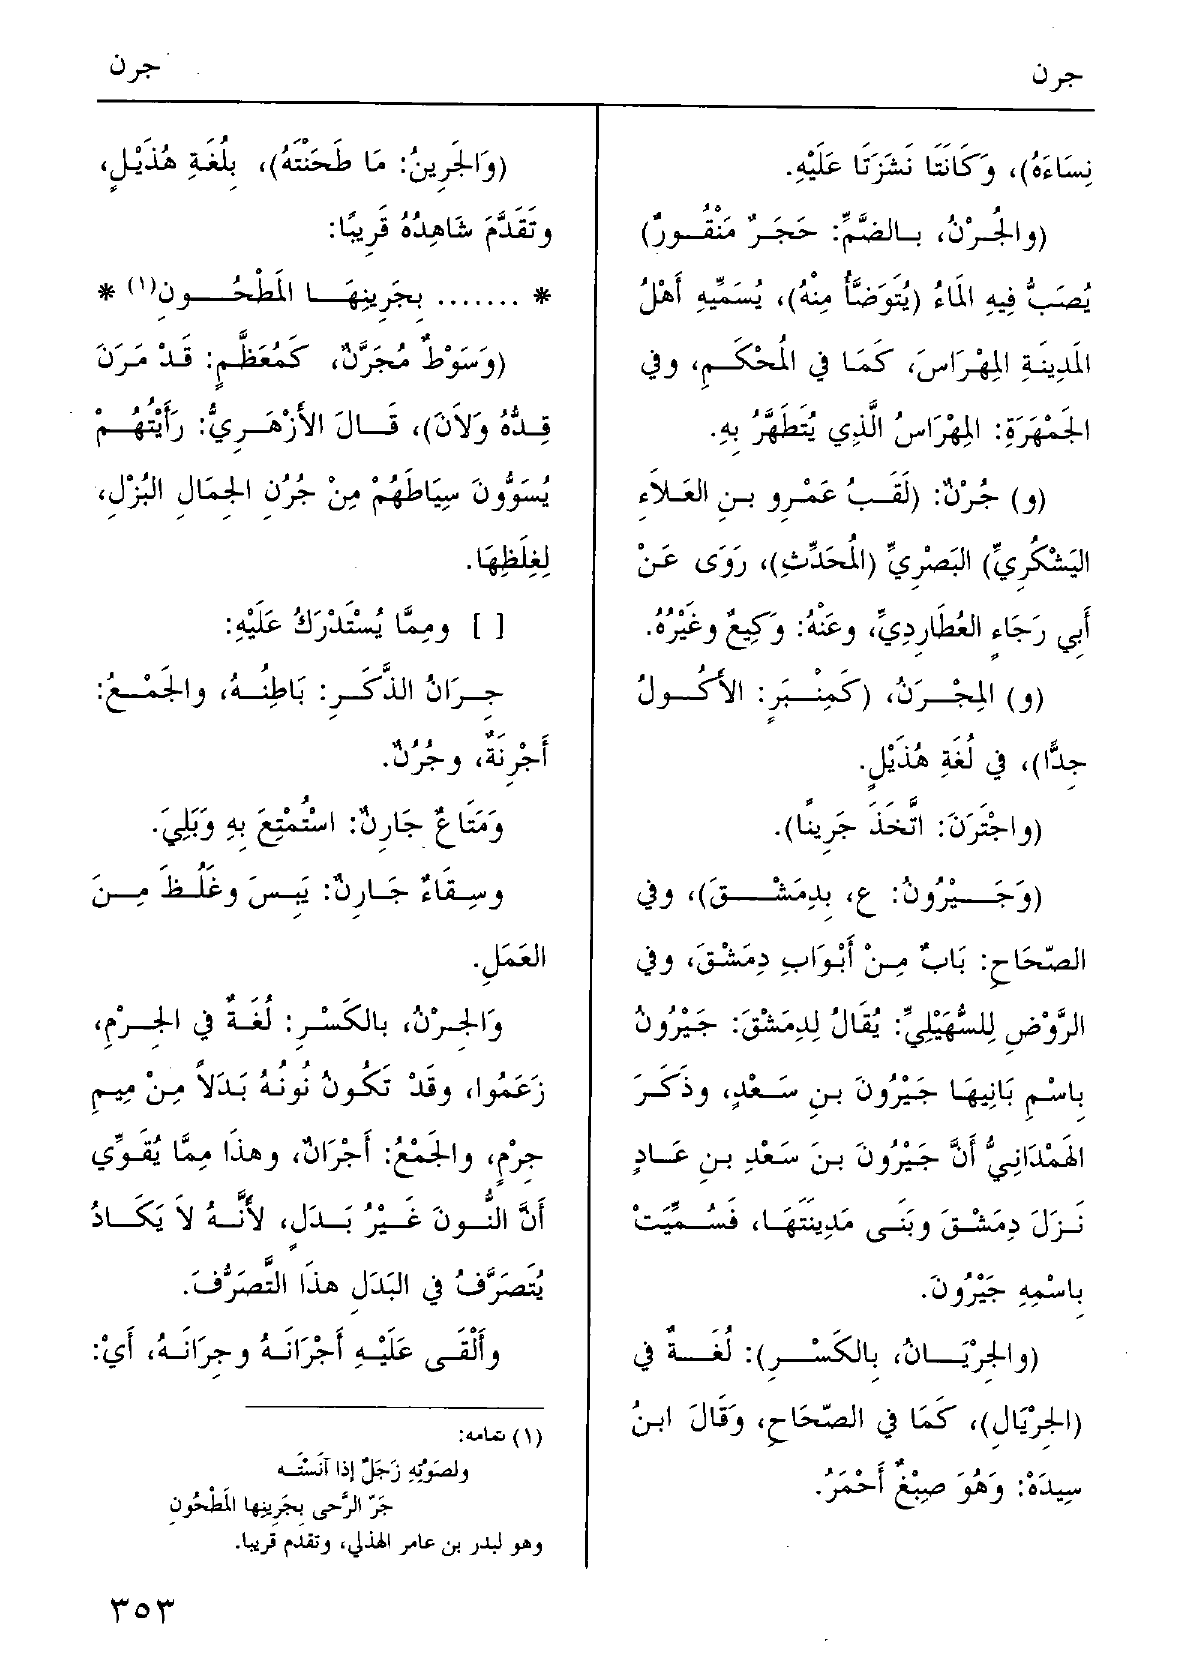 جرن
جرن
نِسَاءَهُ)، وَكَانَتَا نَشَزَتَا عَلَيْهِ.
(والجُرْنُ، بالضَّمِّ: حَجَرٌ مَنْقُورٌ)
يُصَبُّ فِيهِ المَاءُ (يُتَوَضَّأُ مِنْهُ)، يُسَمِّيهِ أَهْلُ
المَدِينَةِ المِهْرَاسَ، كَمَا فِي المُحْكَمِ، وفِي
الجَمْهَرَةِ: المِهْرَاسُ الَّذِي يُتَطَهَّرُ بِهِ.
(و) جُرْنٌ: (لَقَبُ عَمْرِو بنِ العَلاَءِ
اليَشْكُرِيِّ) البَصْرِيِّ (المُحَدِّثِ)، رَوَى عَنْ
أَبِي رَجَاءٍ العُطَارِدِيِّ، وعَنْهُ: وَكِيعٌ وغَيْرُهُ.
(و) المِجْرَنُ، (كَمِنْبَرٍ: الأَكُولُ
جِدًّا)، فِي لُغَةِ هُذَيْلٍ.
(واجْتَرَنَ: اتَّخَذَ جَرِينًا).
(وَجَيْرُونُ: ع، بِدِمَشْقَ)، وفِي
الصّحَاحِ: بَابٌ مِنْ أَبْوَابِ دِمَشْقَ، وفِي
الرَّوْضِ لِلسُّهَيْلِيِّ: يُقَالُ لِدِمَشْقَ: جَيْرُونُ
بِاسْمِ بَانِيهَا جَيْرُونَ بنِ سَعْدٍ، وذَكَرَ
الهَمْدَانِيُّ أَنَّ جَيْرُونَ بنَ سَعْدِ بنِ عَادٍ
نَزَلَ دِمَشْقَ وبَنَى مَدِينَتَهَا، فَسُمِّيَتْ
بِاسْمِهِ جَيْرُونَ.
(والجِرْيَانُ، بِالكَسْرِ): لُغَةٌ فِي
(الجِرْيَالِ)، كَمَا فِي الصّحَاحِ، وَقَالَ ابنُ
سِيدَهْ: وَهُوَ صِبْغٌ أَحْمَرُ.
(وَالجَرِينُ: مَا طَحَنْتَهُ)، بِلُغَةِ هُذَيْلٍ،
وتَقَدَّمَ شَاهِدُهُ قَرِيبًا:
* ....... بِجَرِينِهَا المَطْحُونِ(١) *
(وَسَوْطٌ مُجَرَّنٌ، كَمُعَظَّمٍ: قَدْ مَرَنَ
قِدُّهُ ولاَنَ)، قَالَ الأَزْهَرِيُّ: رَأَيْتُهُمْ
يُسَوُّونَ سِيَاطَهُمْ مِنْ جُرُنِ الجِمَالِ البُزْلِ،
لِغِلَظِهَا.
[ ] ومِمَّا يُسْتَدْرَكُ عَلَيْهِ:
جِرَانُ الذَّكَرِ: بَاطِنُهُ، والجَمْعُ:
أَجْرِنَةٌ، وجُرُنٌ.
ومَتَاعٌ جَارِنٌ: اسْتُمْتِعَ بِهِ وَبَلِيَ.
وسِقَاءٌ جَارِنٌ: يَبِسَ وغَلُظَ مِنَ
العَمَلِ.
وَالجِرْنُ، بالكَسْرِ: لُغَةٌ فِي الجِرْمِ،
زَعَمُوا، وقَدْ تَكُونُ نُونُهُ بَدَلاً مِنْ مِيمِ
جِرْمٍ، والجَمْعُ: أَجْرَانٌ، وهذَا مِمَّا يُقَوِّي
أَنَّ النُّونَ غَيْرُ بَدَلٍ، لأَنَّهُ لاَ يَكَادُ
يُتَصَرَّفُ فِي البَدَلِ هذَا التَّصَرُّفَ.
وأَلْقَى عَلَيْهِ أَجْرَانَهُ وجِرَانَهُ، أَيْ:
(١) تمامه:
ولصَوْتِهِ زَجَلٌ إذا آنَسْتَه
جَرّ الرَّحَى بِجَرِينِها المَطْحُونِ
وهو لبدر بن عامر الهذلي، وتقدم قريبا.
٣٥٣